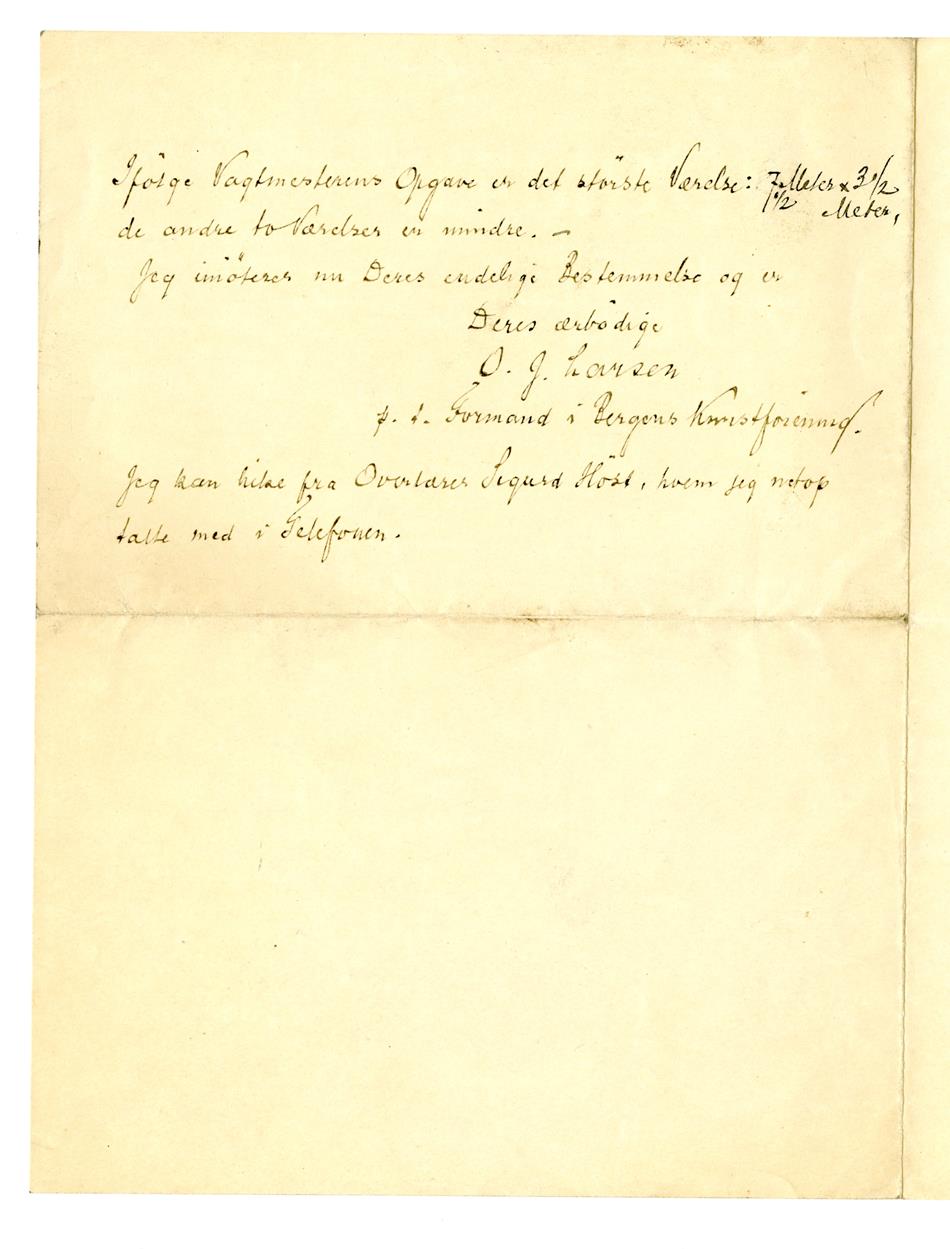 Ifölge Vagtmesterens Opgave er det störste Værelse: 7 1/2 Meter x 3 1/2 Meter,
de andre to Værelser er mindre. —
Jeg imöteser nu Deres endelige Bestemmelse og er
Deres ærbödige
O. J. Larsen
p. t. Formand i Bergens Kunstforening.
Jeg kan hilse fra Overlærer Sigurd Höst, hvem jeg netop
talte med i Telefonen.